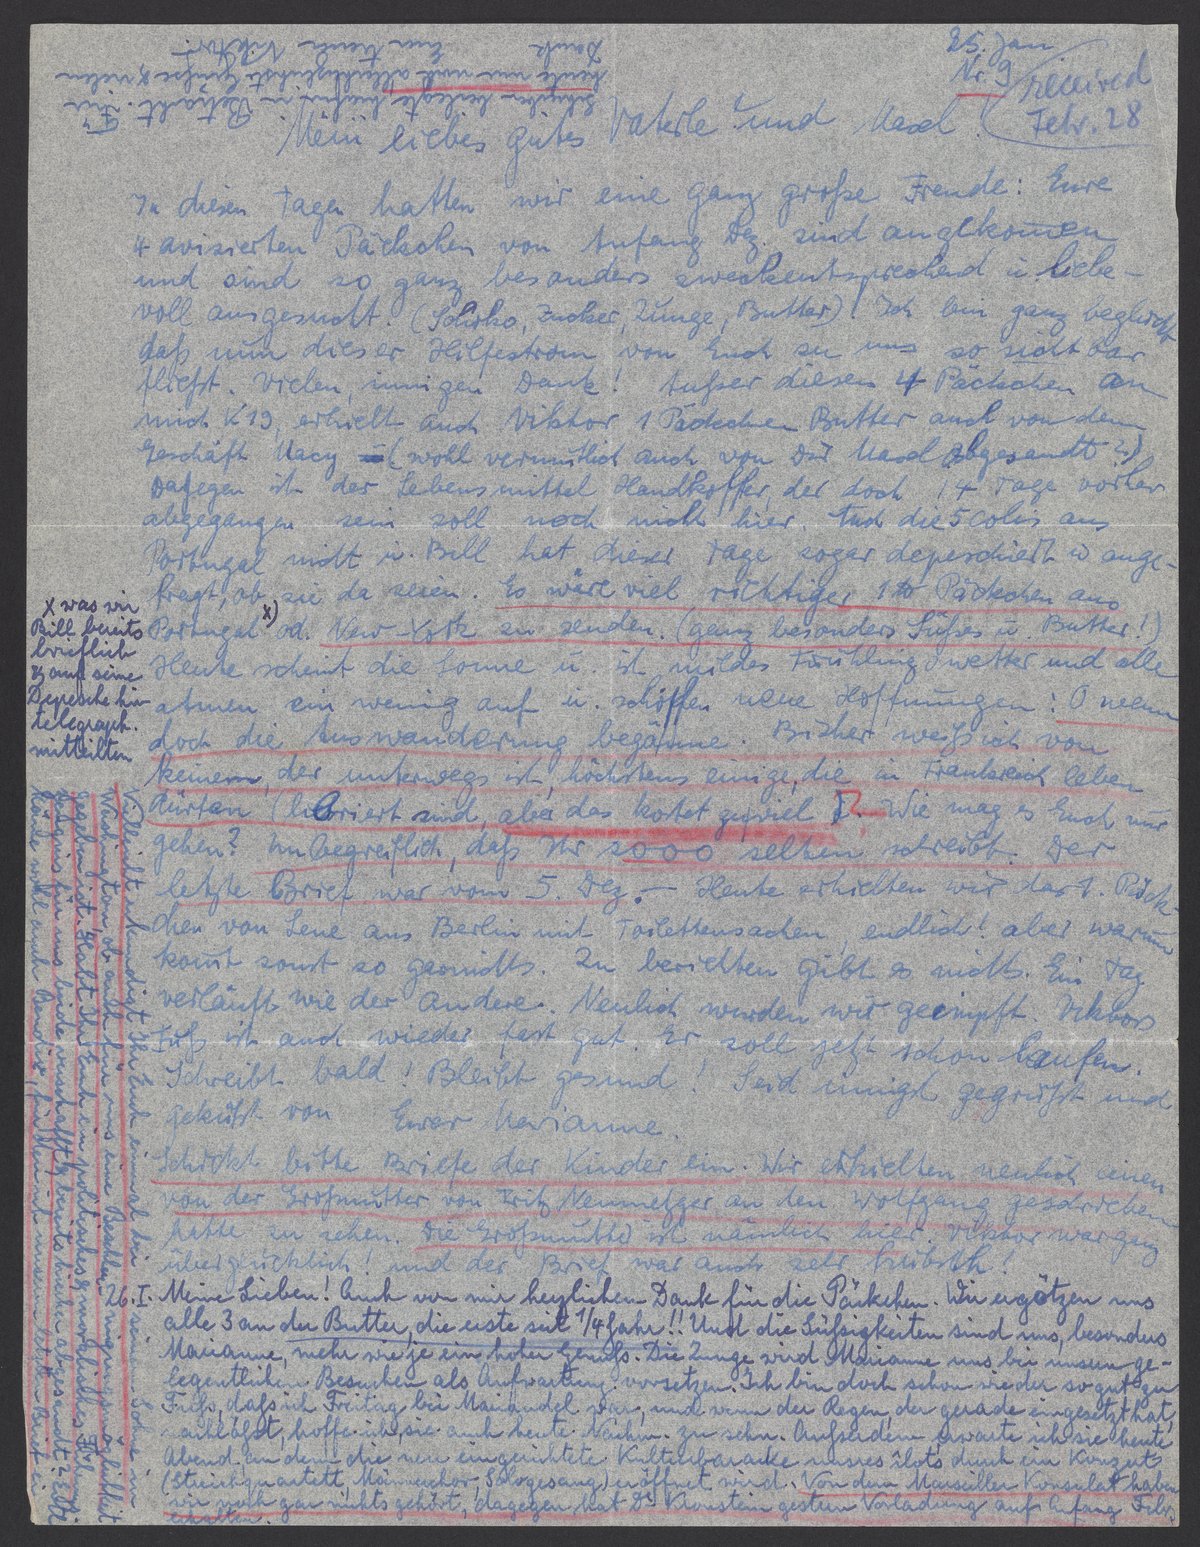 25. Jan
Nr. 9
received
Febr. 28
Mein liebes gutes Vaterle und Masel!
In diesen Tagen hatten wir eine ganz große Freude: Eure
4 avisierten Päckchen von Anfang Dez. sind angekommen
und sind so ganz besonders zweckentsprechend u. liebe-
voll ausgesucht. (Schoko, Zucker, Zunge, Butter)! Ich bin ganz beglückt
daß nun dieser Hilfestrom von Euch zu uns so sichtbar
fließt. Vielen, innigen Dank! Außer diesen 4 Päckchen an
mich K19, erhielt auch Viktor 1 Päckchen Butter auch von dem
Geschäft Macy = (wohl vermutlich auch von Dir Masel abgesandt?)
Dagegen ist der Lebensmittel Handkoffer, der doch 14 Tage vorher
abgegangen sein soll noch nicht hier. Auch die 5 Colis aus
Portugal nicht u. Bill hat dieser Tage sogar depeschiert u. ange-
fragt, ob sie da seien. Es wäre viel richtiger 1 Päckchen aus
Portugal x) od. New-York zu senden. (ganz besonders Süßes u. Butter!)
Heute scheint die Sonne u. ist mildes Frühlingswetter und alle
atmen ein wenig auf u. schöpfen neue Hoffnungen: O wenn
doch die Auswanderung begänne. Bisher weiß ich von
keinem, der unterwegs ist, höchstens einige, die in Frankreich leben
dürfen (liberiert sind, aber das kostet zuviel). Wie mag es Euch nur
gehen? Unbegreiflich, daß Ihr sooo selten schreibt. Der
letzte Brief war vom 5. Dez. – Heute erhielten wir das 1. Päck-
chen von Lene aus Berlin mit Toilettensachen, endlich! aber warum
kommt sonst so garnichts. Zu berichten gibt es nichts. Ein Tag
verläuft wie der andere. Neulich wurden wir geimpft. Viktors
Fuß ist auch wieder fast gut. Er soll jetzt schon laufen.
Schreibt bald! Bleibt gesund! Seid innigst gegrüßt und
geküßt von Eurer Marianne.
Schickt bitte Briefe der Kinder ein. Wir erhielten neulich einen
von der Großmutter von Fritz Neumetzger an den Wolfgang geschrieben
hatte zu sehen. Die Großmutter ist nämlich hier. Viktor war ganz
überglücklich! und der Brief war auch sehr hübsch!
26. I. Meine Lieben! Auch von mir herzlichen Dank für die Päckchen. Wir ergötzen uns
alle 3 an der Butter, die erste seit 1/4 Jahr!! Und die Süßigkeiten sind uns, besonders
Marianne, mehr wie je ein hoher Genuß. Die Zunge wird Marianne uns bei unsern ge-
legentlichen Besuchen als Aufwartung vorsetzen. Ich bin doch schon wieder so gut zu
Fuß, daß ich Freitag bei Mariandel war, und wenn der Regen, der gerade eingesetzt hat,
nachläßt, hoffe ich, sie auch heute Nachm. zu sehn. Außerdem erwarte ich sie heute
Abend, an dem die neu eingerichtete Kulturbaracke unsres îlots durch ein Konzert
(Streichquartett, Männerchor, Sologesang) eröffnet wird. Von dem Marseiller Konsulat haben
wir noch gar nichts gehört, dagegen hat Dr. Kronstein gestern Vorladung auf Anfang Febr.
erhalten.
x was wir
Bill bereits
brieflich
& auf seine
Depesche hin
telegraph.
mitteilten
Vielleicht erkundigt Ihr Euch einmal bei seinem Sohne in
Washington, ob auch für uns eine Beschleunigungsmöglichkeit
gegeben ist. Habt Ihr Euch ein politisches & moralisches
für uns beide verschafft & bereits hierher abgesandt?
heute
heute nur noch allerherzlichste Grüße & vielen
Dank Euer treuer Viktor.